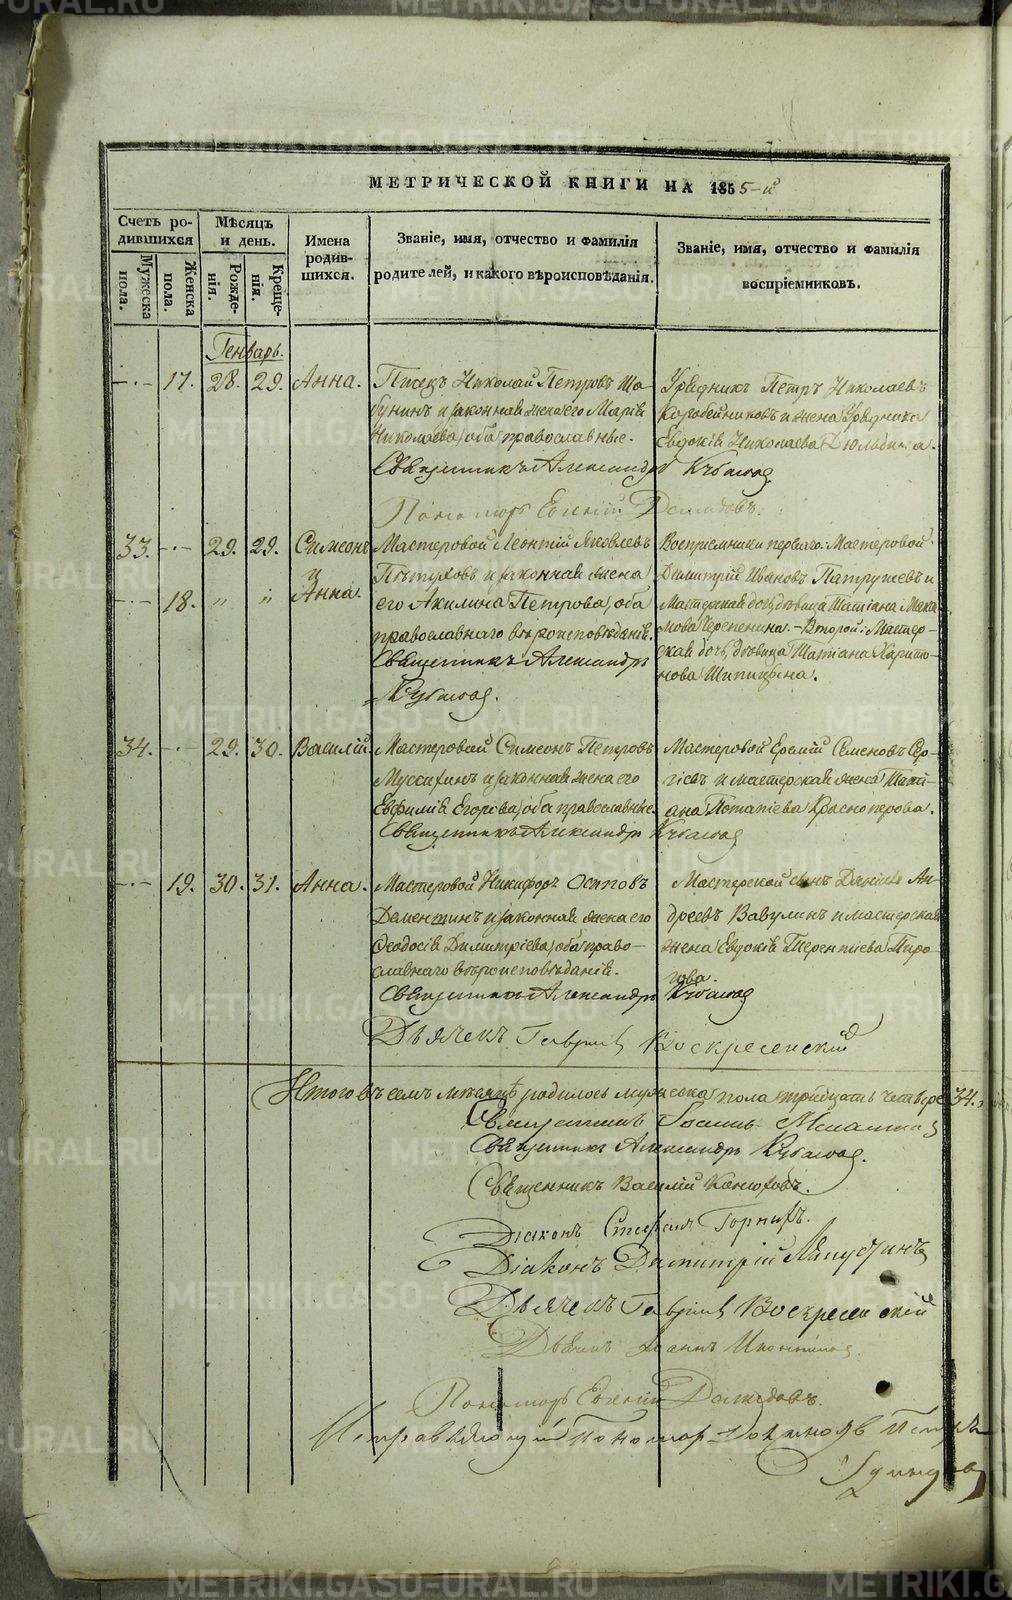 МЕТРИЧЕСКОЙ КНИГИ НА 1855-й
Счетъ родившихся
Мужеска пола.
Женска пола.
Мѣсяцъ и день.
Рожденія.
Крещенія.
Имена родившихся.
Званіе, имя, отчество и фамилія родителей, и какого вѣроисповѣданія.
Званіе, имя, отчество и фамилія воспріемниковъ.
Генварь.
17. 28. 29. Анна.
Писецъ Николай Петровъ Ша-
бунинъ и законная жена его Марія
Николаева, оба православные.
Урядникъ Петръ Николаевъ
Коробейниковъ и жена Урядника
Евдокія Николаева
Священникъ Александръ
Пономарь Евгений Демидовъ.
33. 29. 29. Симеонъ
и
18. " " Анна.
Мастеровой Леонтій Яковлевъ
Пѣтуховъ и законная жена
его Акилина Петрова, оба
православнаго вѣроисповѣданія.
Священникъ Александръ
Воспріемники перваго: Мастеровой
Димитрій Ивановъ Патрушевъ и
Мастерская дочь, дѣвица Татіана Мака-
мова Черепенина. - Второй: Мастер-
ская дочь, дѣвица Татіана Харито-
нова Шипицына.
34. 29. 30. Василій.
Мастеровой Симеонъ Петровъ
Муссихинъ и законная жена его
Евфимія Егорова, оба православные.
Священникъ Александръ
Мастеровой Еремій Семеновъ Сер-
гіевъ и мастерская жена Тати-
ана Потапіева Красноперова.
19. 30. 31. Анна.
Мастеровой Никифоръ Осиповъ
Дементинъ и законная жена его
Ѳеодосія Димитріева, оба право-
славнаго вѣроисповѣданія.
Священникъ Александръ
Мастерской сынъ Даніилъ Ан-
дреевъ Вавулинъ и мастерская
жена Евдокія Терентіева Пиро-
гова.
Дьячекъ Гавриилъ Воскресенский
Итого въ семъ мѣсяцѣ родилось мужеска пола тридцать четыре 34.
Священникъ
Священникъ Александръ
Священникъ Василій Конюховъ.
Діаконъ Стефанъ
Діаконъ Димитрій Ляпустинъ
Дьячекъ Гавриилъ Воскресенский
Дьячекъ Іоаннъ
Пономарь Евгений Демидовъ.
Исправляющий Пономар. должность Петръ
METRIKI.GASO-URAL.RU